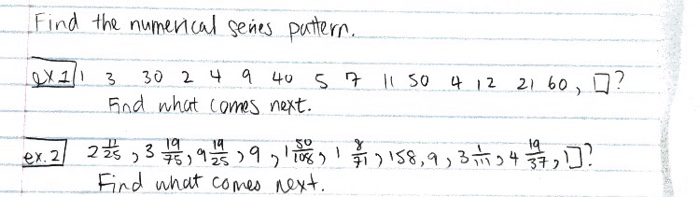 Find the numerical series pattern.
ex 1 1 3 30 2 4 9 40 5 7 11 50 4 12 21 60, □?
Find what comes next.
ex. 2 2 11/25, 3 19/75, 9 19/25, 9, 1 50/108, 1 8/71, 158, 9, 3 1/111, 4 19/37, □?
Find what comes next.